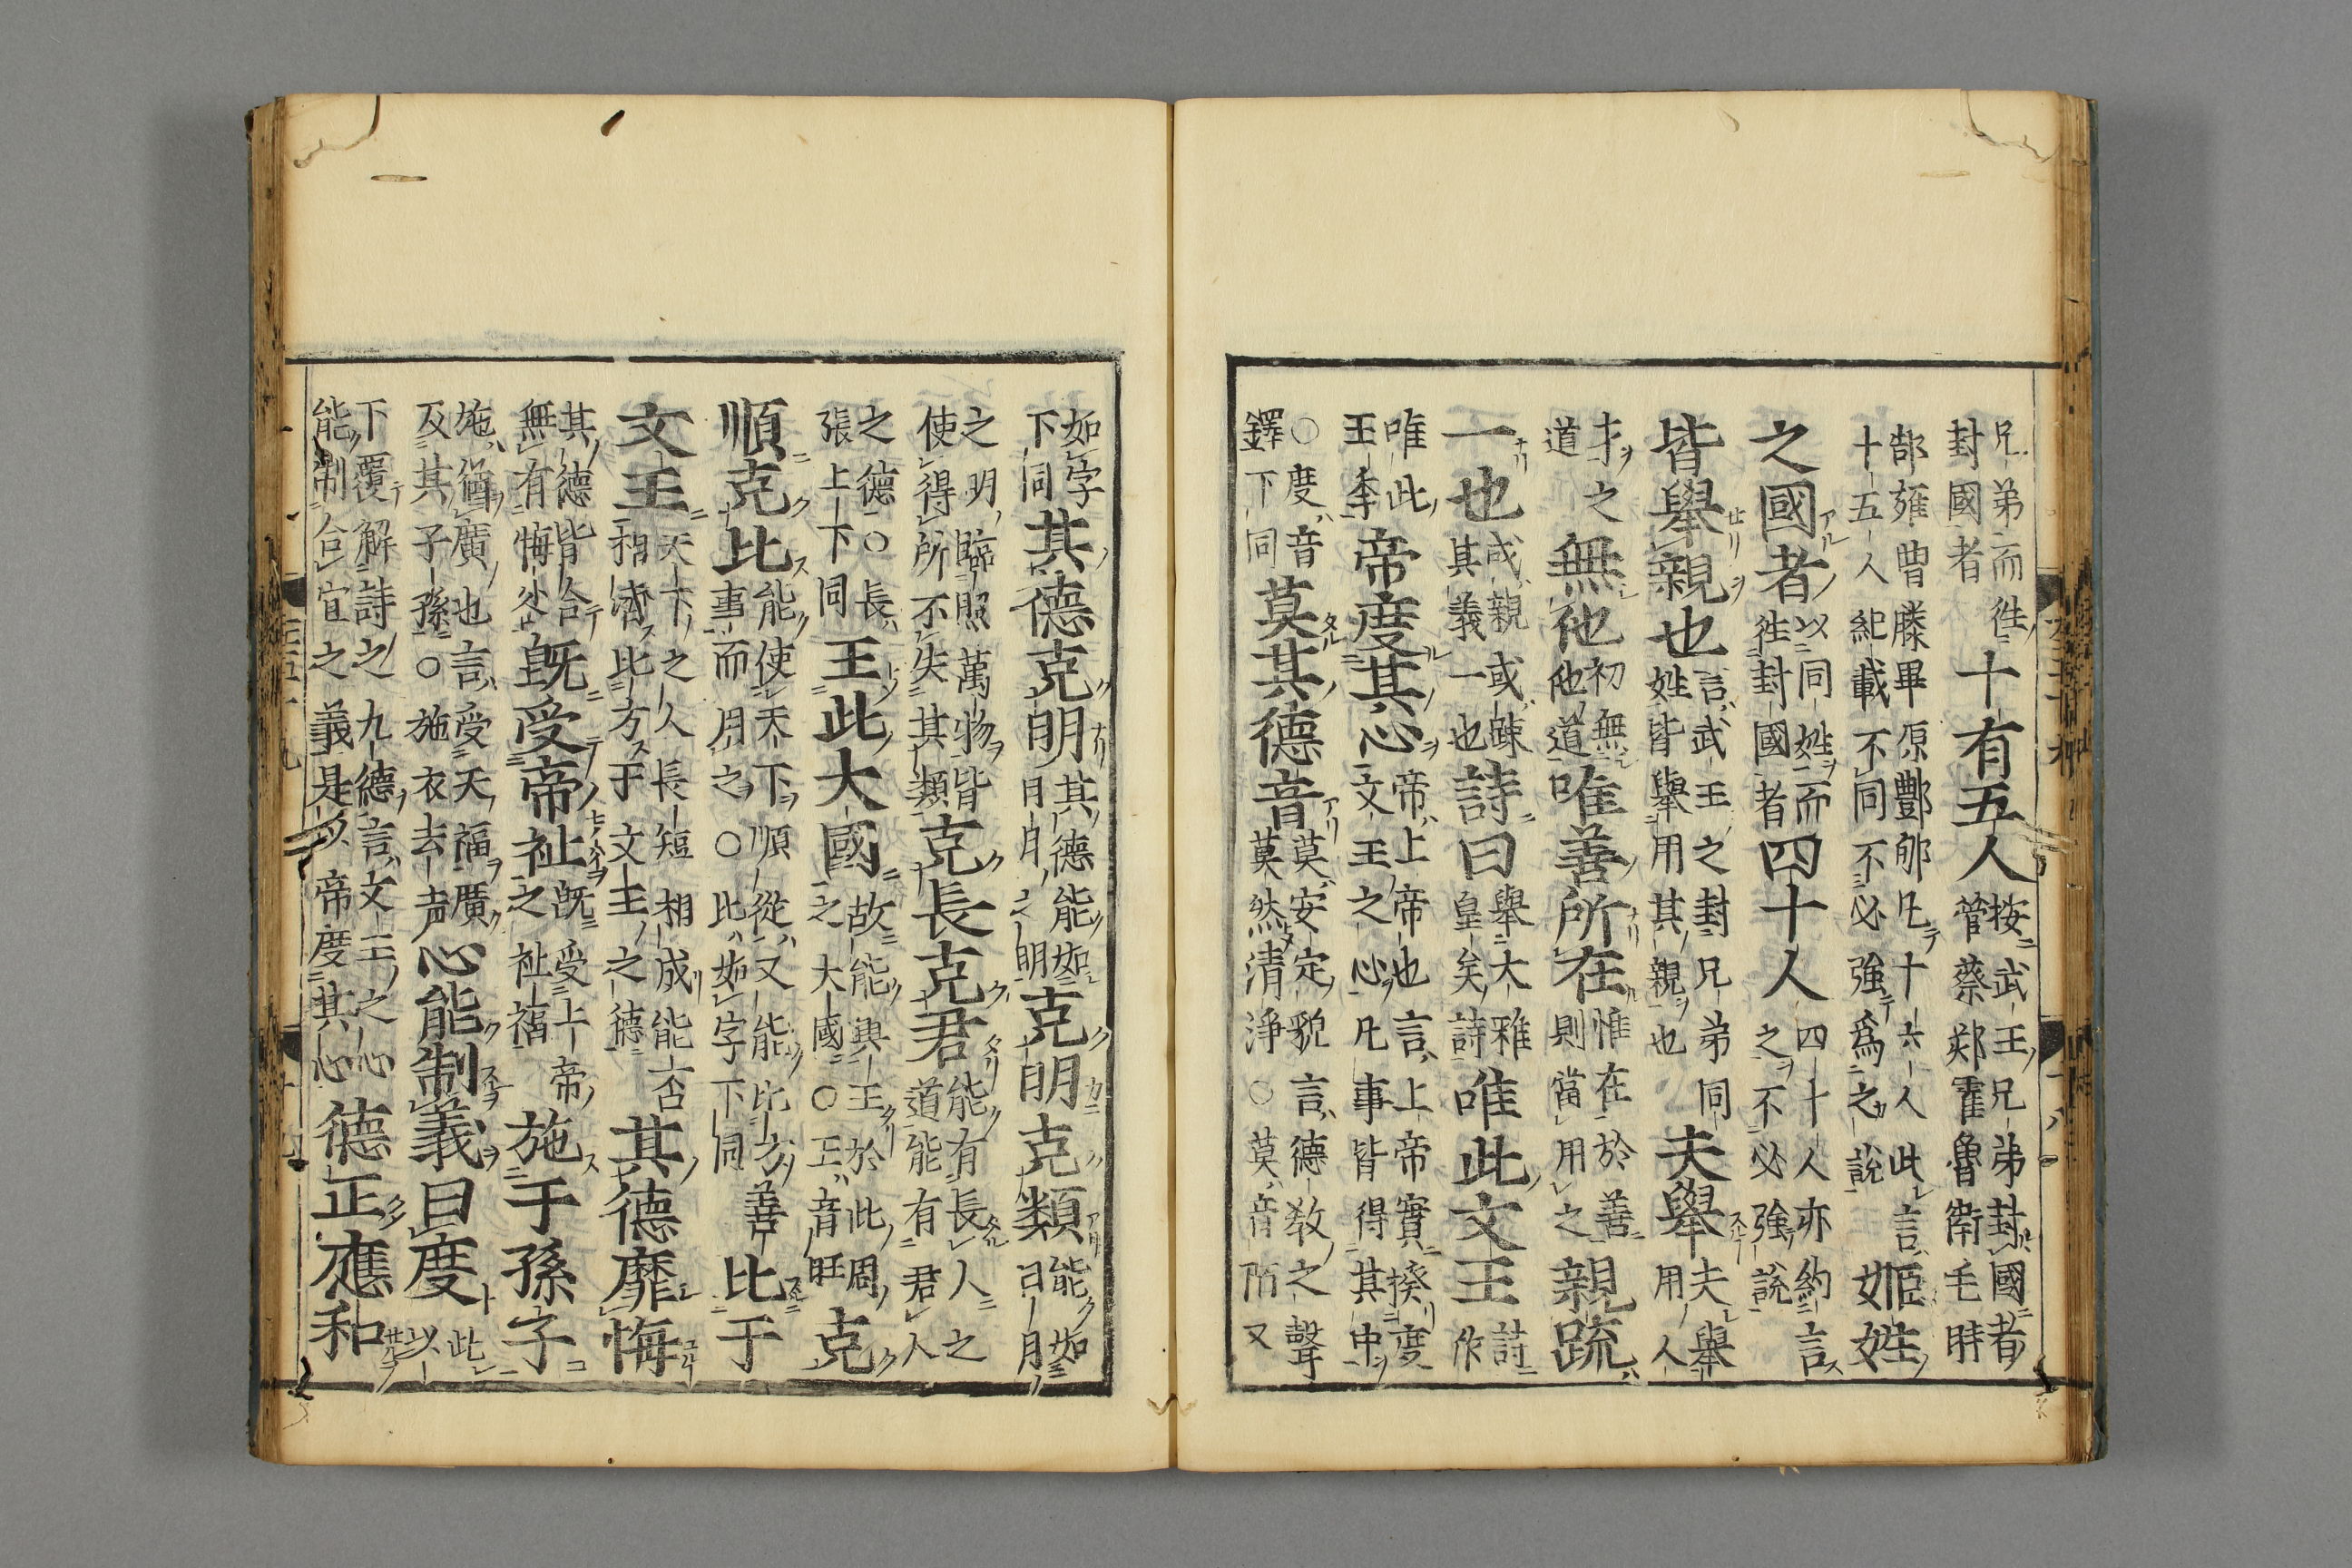 兄弟而徃封國者十有五人按武王兄弟封國者管蔡郕霍魯衛毛聃
郜雍曹滕畢原酆郇凡十六人此言十五人紀載不同不必強為之說姬姓
之國者以同姓而徃封國者四十人四十人亦約言之不必強說
皆舉親也言武王之封兄弟同姓皆舉用其親也夫舉夫舉用人
才之道無他初無他道唯善所在惟在於善則當用之親疏
一也或親或疎其義一也詩曰舉大雅皇矣詩唯此文王詩作
唯此王季帝度其心帝上帝也言上帝實揆度文王之心凡事皆得其中
○度音鐸下同莫其德音莫安定貌言德教之聲莫然清淨○莫音陌又
如字下同其德克明其德能如日月之明克明克類能如日月
之明臨照萬物皆使得所不失其類克長克君能有長人之道能有君人
之德○長張上下同王此大國故能興王於此周之大國○王音旺克
順克比能使天下順從又能比方善事而用之○比如字下同比于
文王天下之人長短相成能否相濟比方于文王之德其德靡悔
其德皆合無有悔吝既受帝祉既受上帝之祉福施于孫子
施猶廣也言受天福廣及其子孫○施衣去声心能制義曰度此以
下覆解詩之九德言文王之心能制合宜之義是以帝度其心德正應和